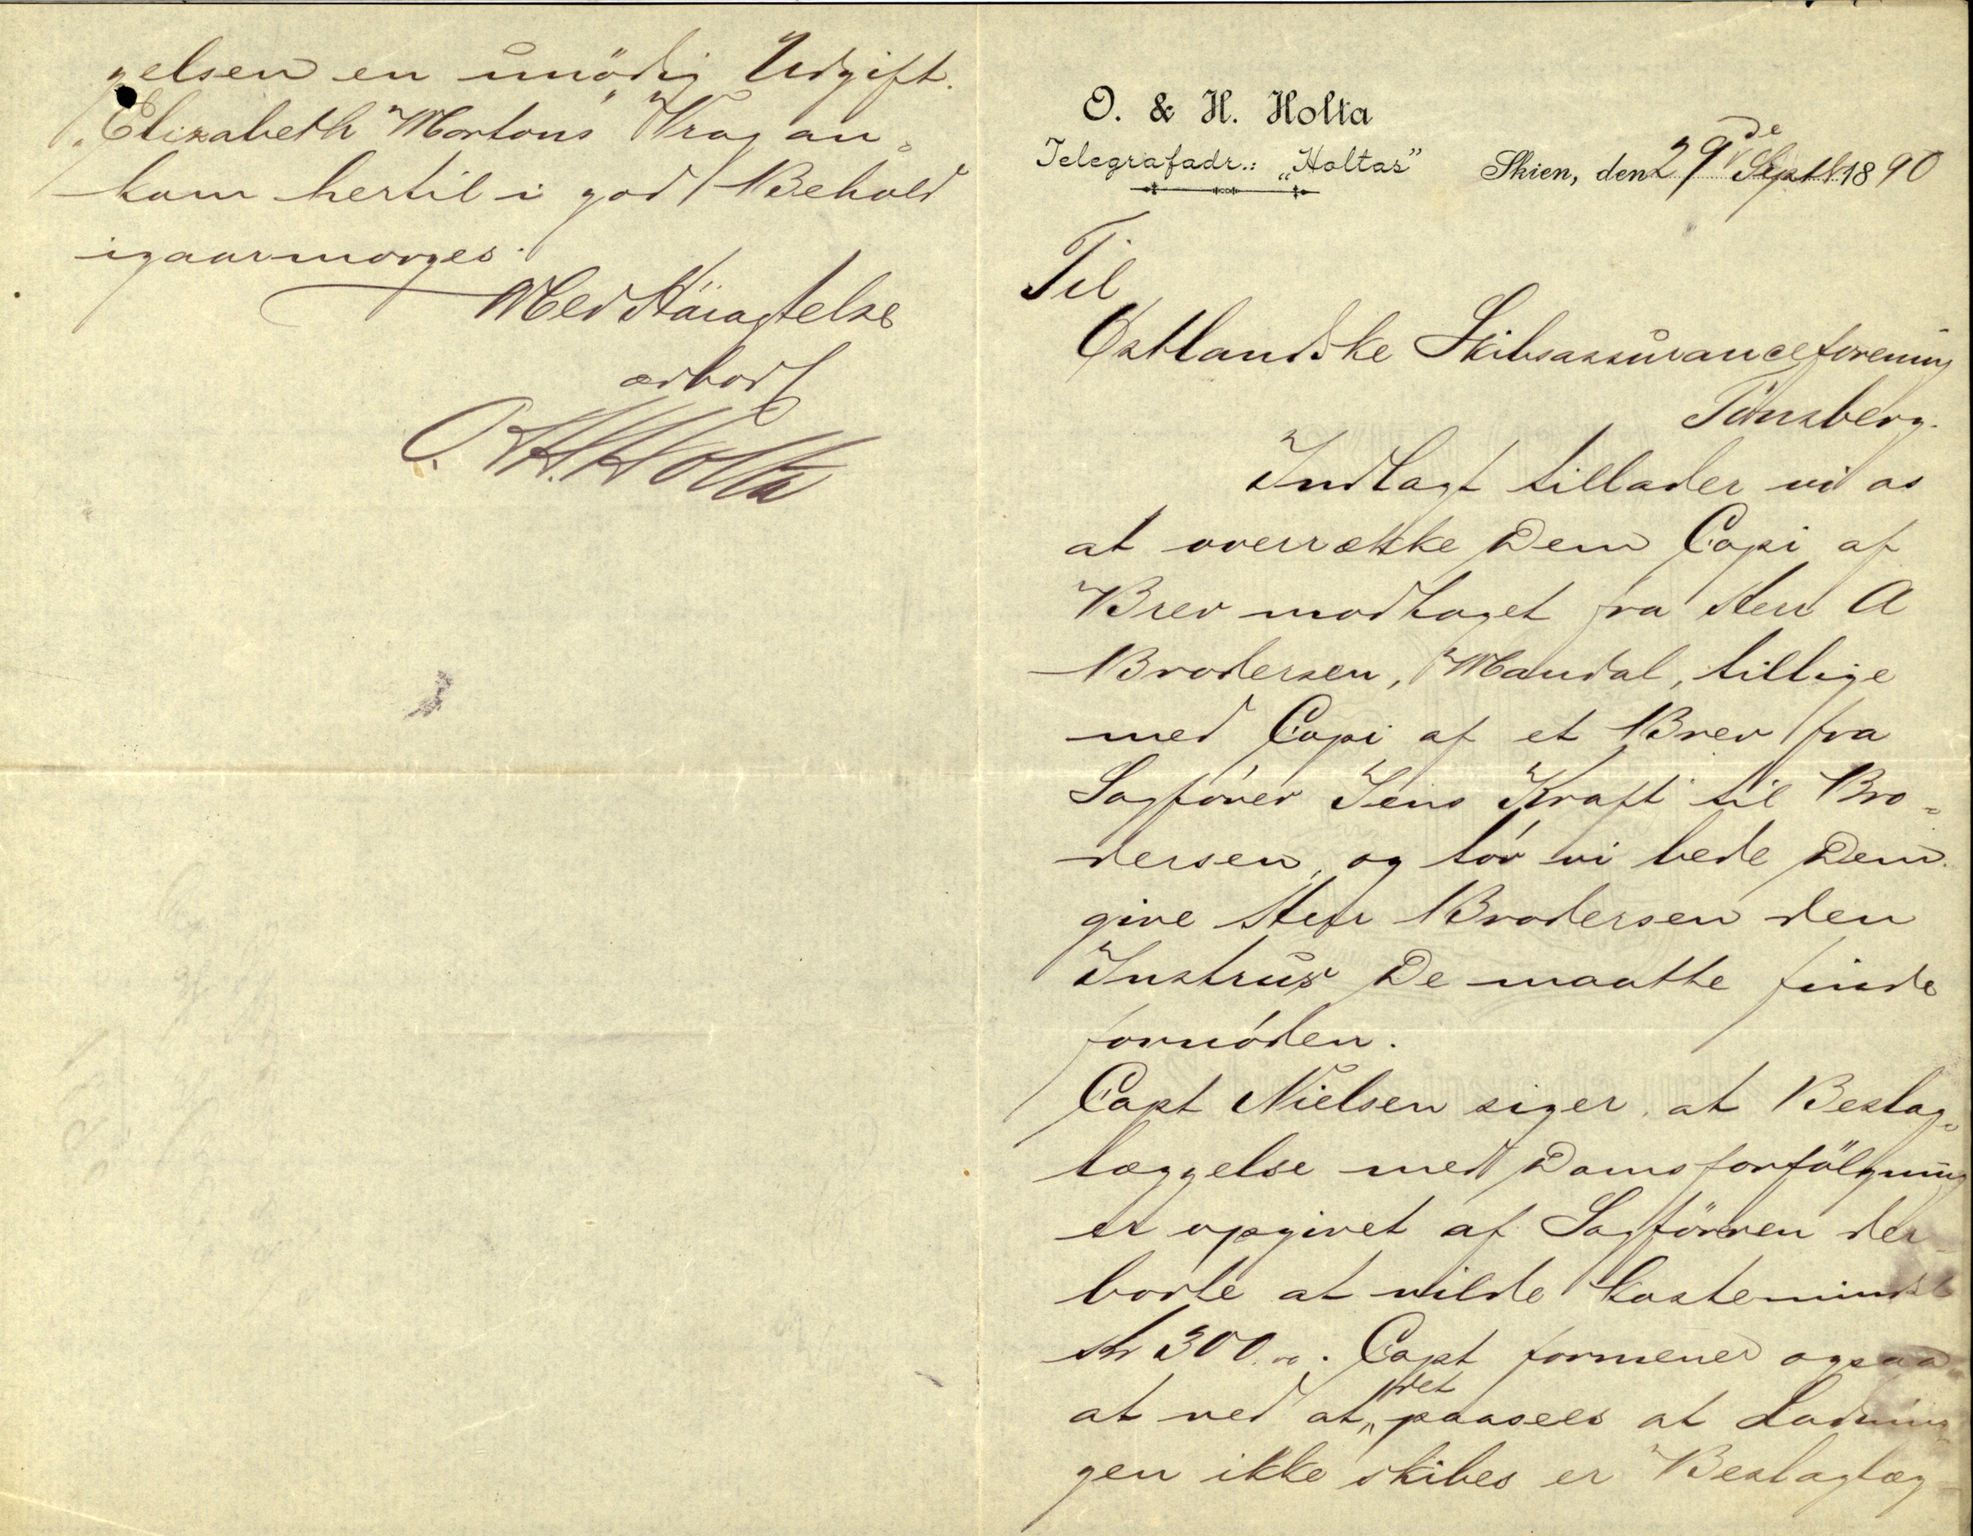 O. & H. Holta
Telegrafadr.: „Holtas”
Skien, den 29de Septb. 1890
Til
Østlandske Skibsassuranceforening
Tönsberg.
Indlagt tillader vi os
at overrække Dem Copi af
Brev modtaget fra Herr A
Brodersen, Mandal, tillige
med Copi af et Brev fra
Sagförer Jens Kraft til Bro-
dersen, og tör vi bede Dem
give Herr Brodersen den
Instrux De maatte finde
fornöden.
Capt Nielsen siger at Beslag-
læggelse med Domsforfölgning
er opgivet af Sagföreren der
borte at vilde koste mindst
Kr 300.00. Capt formener ogsaa
at ved at det paasees at Ladnin-
gen ikke skibes er Beslaglæg-
gelsen en unödig Udgift.
„Elizabeth Mortons” Vrag an-
kom hertil i god Behold
igaarmorges.
Med Höiagtelse
ærbödf
O. & H. Holta